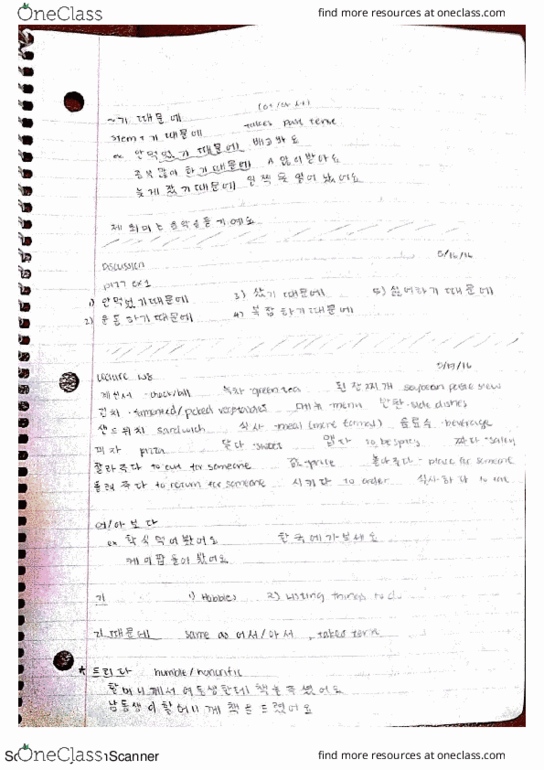 OneClass find more resources at oneclass.com
~기 때문에 (어/아서)
stem + 기 때문에 takes past tense
ex 안먹었기 때문에 배고파요
공부 많이 하기 때문에 A
늦게 잤기 때문에
제 취미는 음악을 듣기예요
Discussion 5/16/16
p177 ex1
1) 안먹었기때문에 3) 샀기 때문에 5) 싫어하기 때문에
2) 운동 하기때문에 4) 복잡 하기때문에
Lecture W8
계산서 check/bill 녹차 green tea 된장찌개 soybean paste stew
김치 fermented/pickled vegetables 메뉴 menu 반찬 side dishes
샌드위치 sandwich 식사 meal (more formal) 음료수 beverage
피자 pizza 달다 sweet 맵다 to be spicy 짜다 salty
잘라주다 to cut for someone 값 price 놓아주다 - place for someone
돌려주다 to return for someone 시키다 to order 식사하다
어/아 보다
ex 학식 먹어봤어요 한국에 가 보세요
케이팝 들어 봤어요
기 1) Hobbies 2) Listing things to do
기 때문에 same as 어서/아서, takes tense
* 드리다 humble/honorific
할머니께서 여동생한테 책을 주셨어요
남동생이 할머니께 책을 드렸어요
OneClass Scanner find more resources at oneclass.com